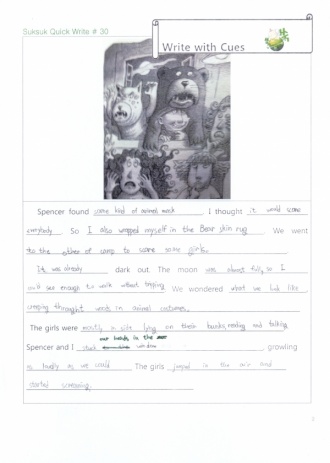 Suksuk Quick Write # 30
Write with Cues
Spencer found some kind of animal mask. I thought it would scare
everybody. So I also wrapped myself in the Bear skin rug. We went
to the other of camp to scare some girls.
It was already dark out. The moon was almost full, so I
could see enough to walk without tripping. We wondered what we look like
creeping throught woods in animal costumes.
The girls were mostly in side lying on their bunks, reading and talking.
our heads in the
Spencer and I stuck window, growling
as loudly as we could. The girls jumped in the air and
started screaming.